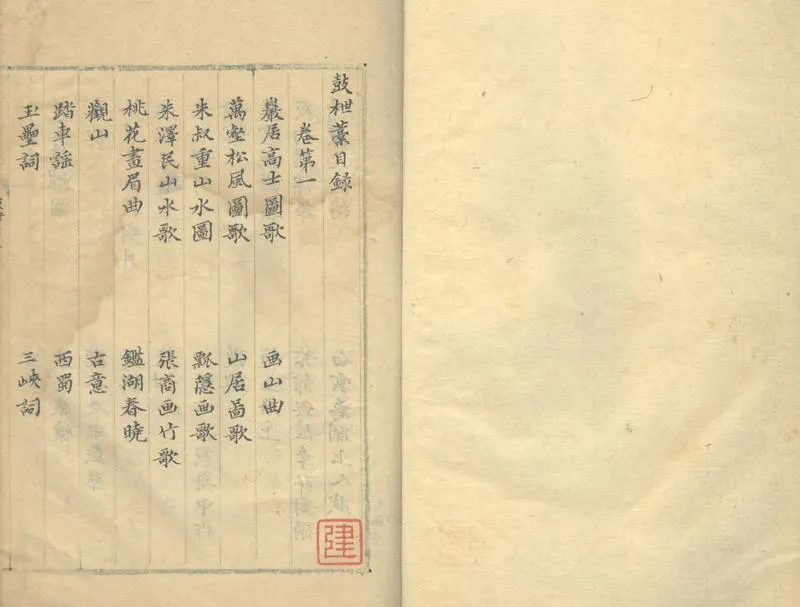 鼓枻藁目録
卷第一
巖居高士圖歌
画山曲
萬壑松風圖歌
山居啚歌
朱叔重山水圖
瓢隱画歌
朱澤民山水歌
張商画竹歌
桃花畫眉曲
鑑湖春曉
觀山
古意
踏車謡
西蜀
玉壘詞
三峽詞
建